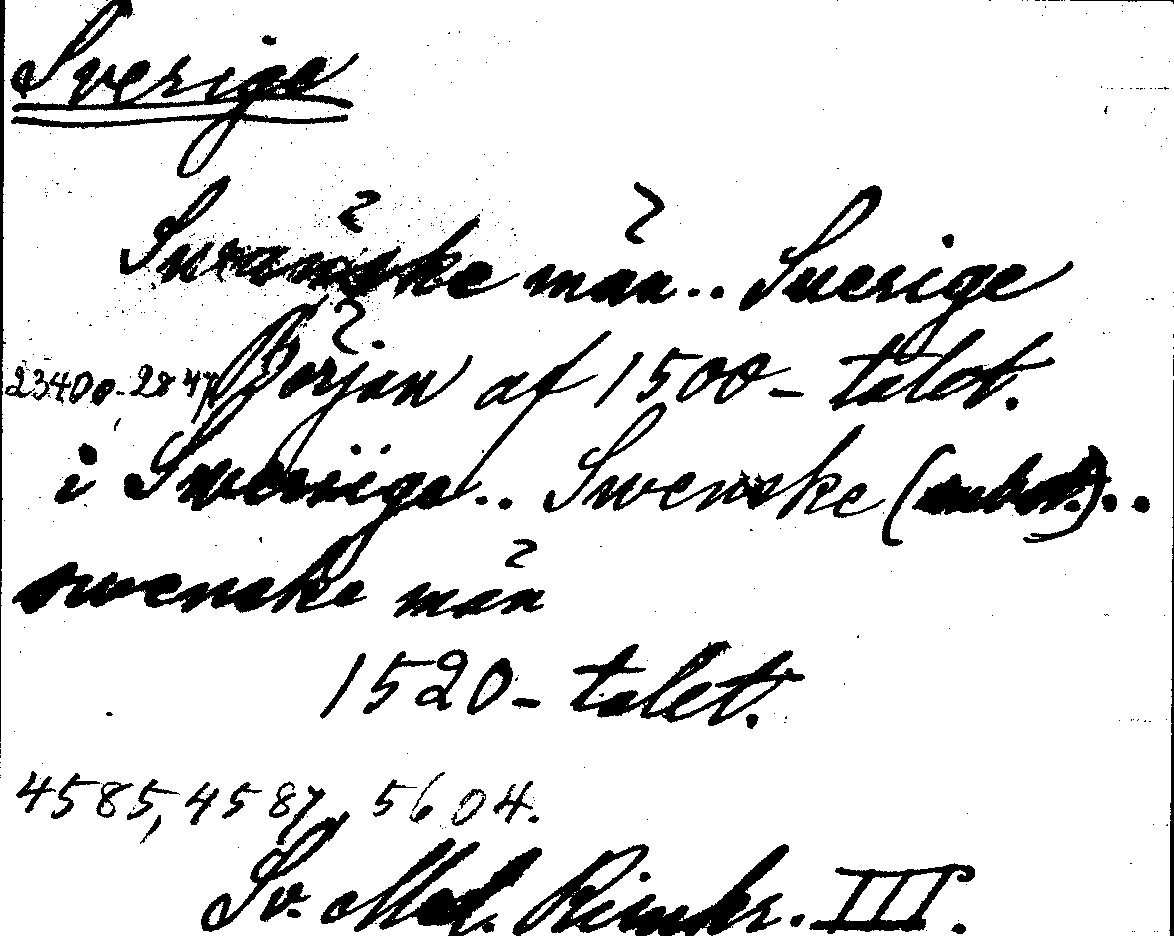 Sverige
Swenske män.. Suerige
23400-2847 Början af 1500-talet.
i Sweriige.. Swenske (subst.)..
swenske män
1520-talet.
4585, 4587, 5604.
Sv. Med. Rimkr. III.